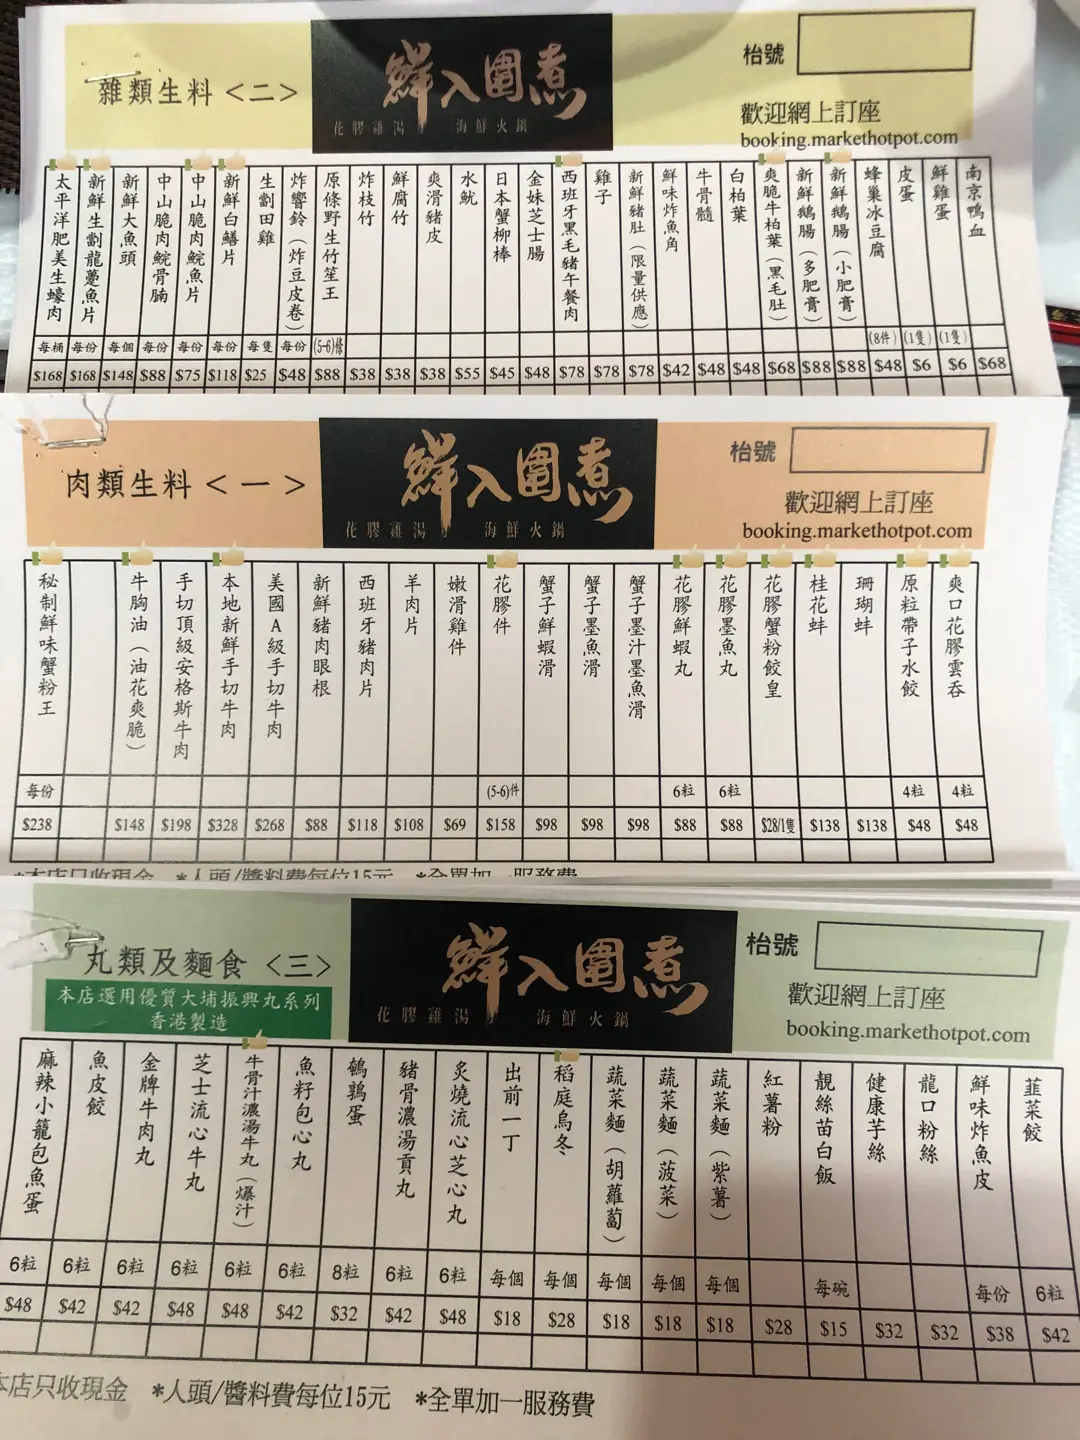 雜類生料<二>
鮮入圍煮
花膠雞湯 海鮮火鍋
枱號
歡迎網上訂座
booking.markethotpot.com
南京鴨血 $68
鮮雞蛋 (1隻) $6
皮蛋 (1隻) $6
蜂巢冰豆腐 (8件) $48
新鮮鵝腸(小肥膏) $88
新鮮鵝腸(多肥膏) $88
爽脆牛柏葉(黑毛肚) $68
白柏葉 $48
牛骨髓 $48
鮮味炸魚角 $42
新鮮豬肚(限量供應) $78
雞子 $78
西班牙黑毛豬午餐肉 $78
金妹芝士腸 $48
日本蟹柳棒 $45
水魷 $55
爽滑豬皮 $38
鮮腐竹 $38
炸枝竹 $38
原條野生竹笙王 (5-6)條 $88
炸響鈴(炸豆皮卷) 每份 $48
生劏田雞 每隻 $25
新鮮白鱔片 每份 $118
中山脆肉鯇魚片 每份 $75
中山脆肉鯇骨腩 每份 $88
新鮮大魚頭 每個 $148
新鮮生劏龍躉魚片 每份 $168
太平洋肥美生蠔肉 每桶 $168
肉類生料<一>
鮮入圍煮
花膠雞湯 海鮮火鍋
枱號
歡迎網上訂座
booking.markethotpot.com
爽口花膠雲吞 4粒 $48
原粒帶子水餃 4粒 $48
珊瑚蚌 $138
桂花蚌 $138
花膠蟹粉餃皇 $28/1隻
花膠墨魚丸 6粒 $88
花膠鮮蝦丸 6粒 $88
蟹子墨汁墨魚滑 $98
蟹子墨魚滑 $98
蟹子鮮蝦滑 $98
花膠件 (5-6)件 $158
嫩滑雞件 $69
羊肉片 $108
西班牙豬肉片 $118
新鮮豬肉眼根 $88
美國A級手切牛肉 $268
本地新鮮手切牛肉 $328
手切頂級安格斯牛肉 $198
牛胸油(油花爽脆) $148
秘制鮮味蟹粉王 每份 $238
*本店只收現金 *人頭/醬料費每位15元 *全單加一服務費
丸類及麵食<三>
本店選用優質大埔振興丸系列
香港製造
鮮入圍煮
花膠雞湯 海鮮火鍋
枱號
歡迎網上訂座
booking.markethotpot.com
韮菜餃 6粒 $42
鮮味炸魚皮 每份 $38
龍口粉絲 $32
健康芋絲 $32
靚絲苗白飯 每碗 $15
紅薯粉 $28
蔬菜麵(紫薯) 每個 $18
蔬菜麵(菠菜) 每個 $18
蔬菜麵(胡蘿蔔) 每個 $18
稻庭烏冬 每個 $28
出前一丁 每個 $18
炙燒流心芝心丸 6粒 $48
豬骨濃湯貢丸 6粒 $42
鵪鶉蛋 8粒 $32
魚籽包心丸 6粒 $42
牛骨汁濃湯牛丸(爆汁) 6粒 $48
芝士流心牛丸 6粒 $48
金牌牛肉丸 6粒 $42
魚皮餃 6粒 $42
麻辣小籠包魚蛋 6粒 $48
本店只收現金 *人頭/醬料費每位15元 *全單加一服務費